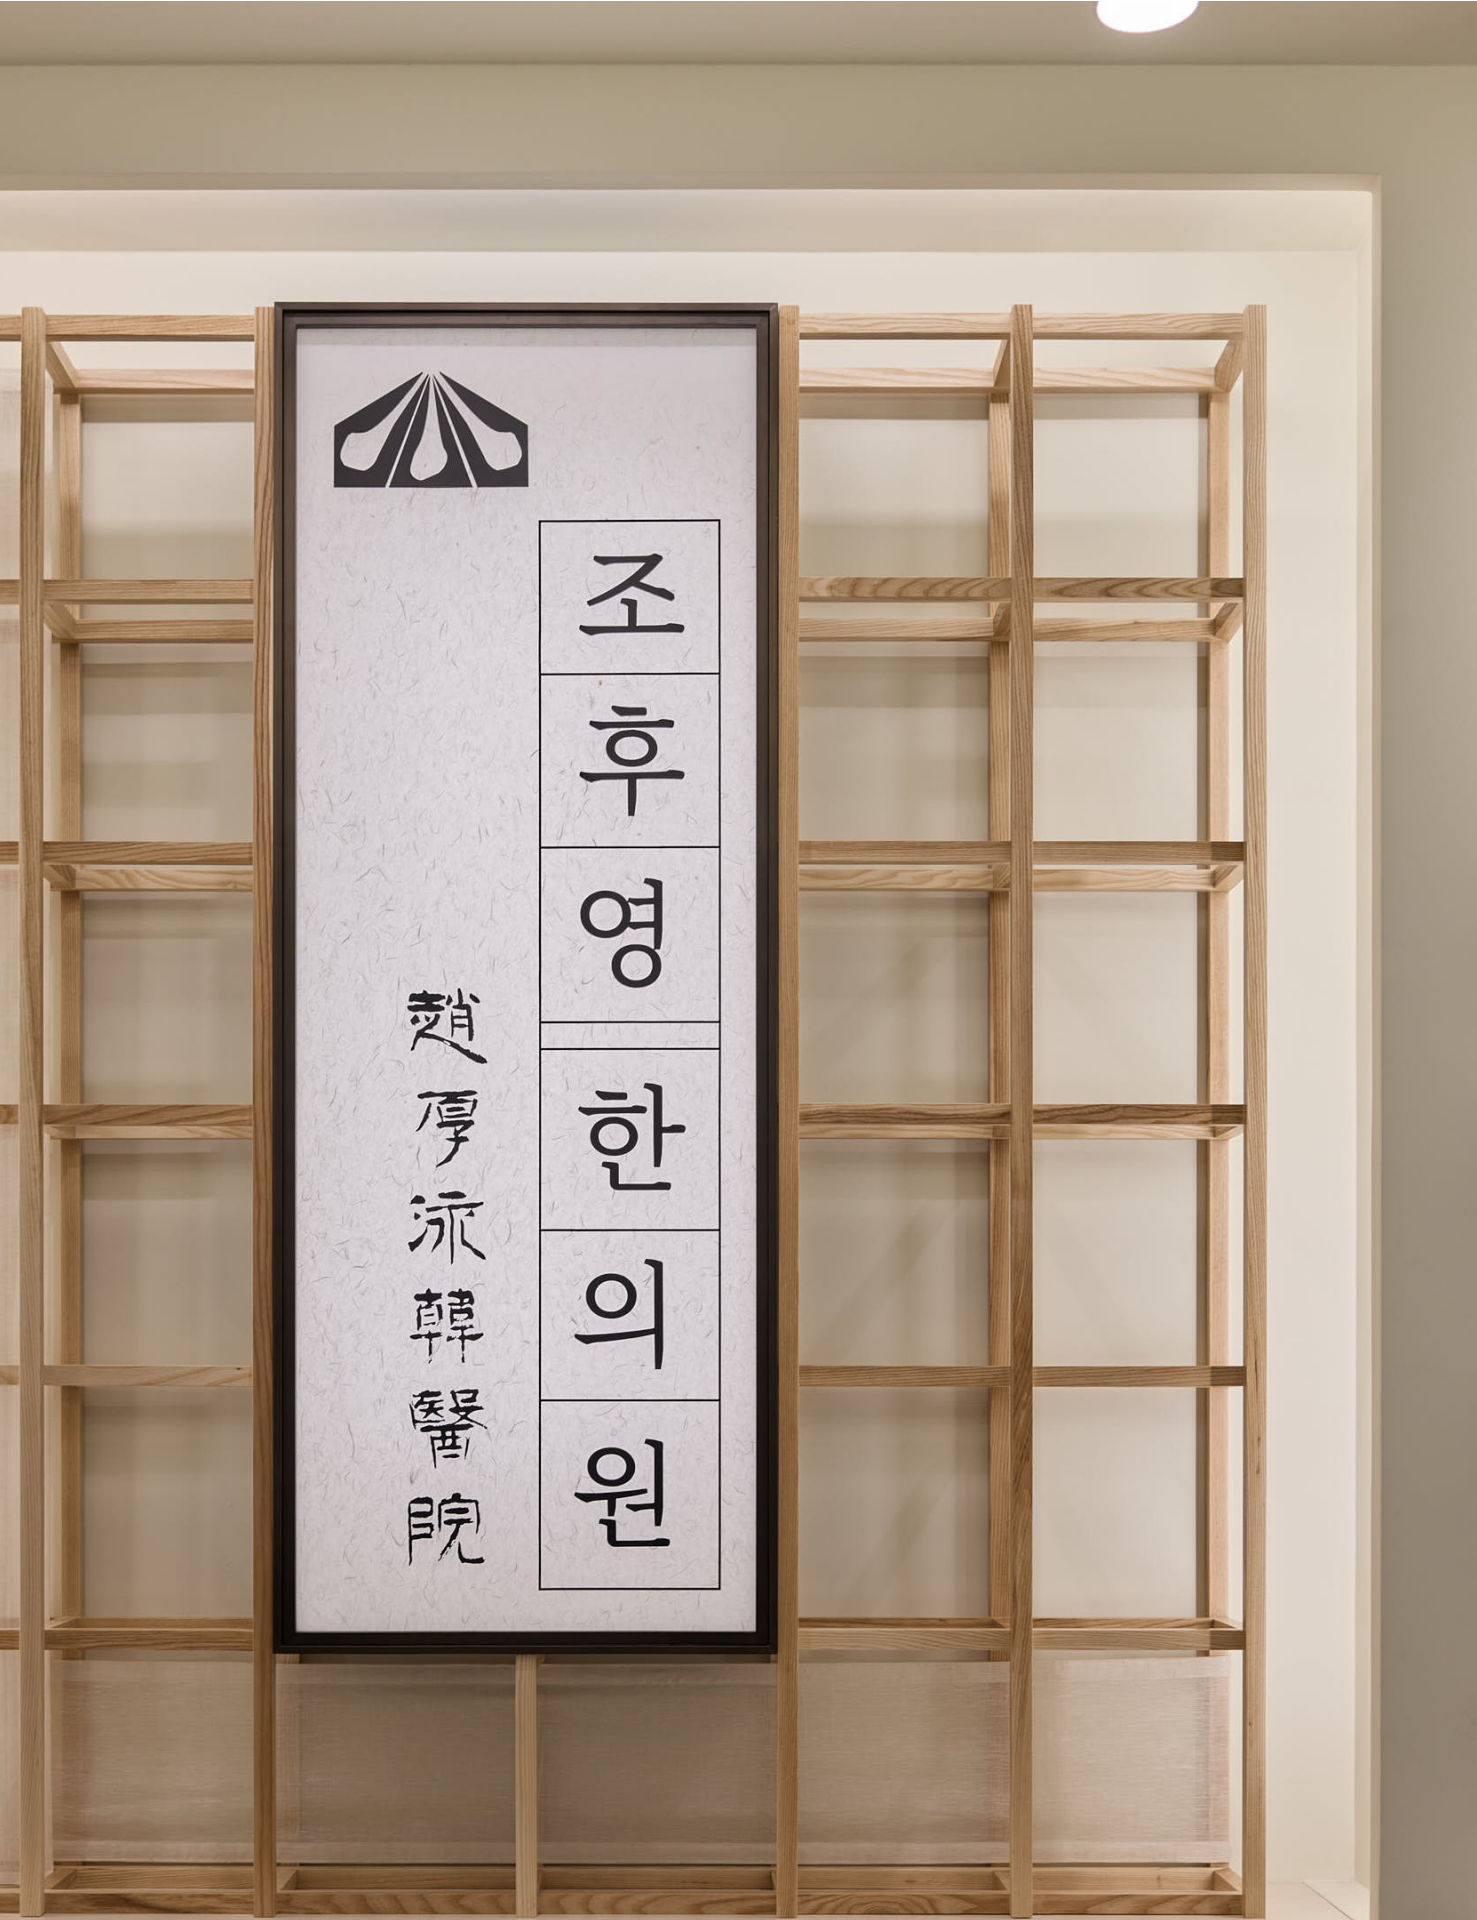 조후영한의원
趙厚泳韓醫院